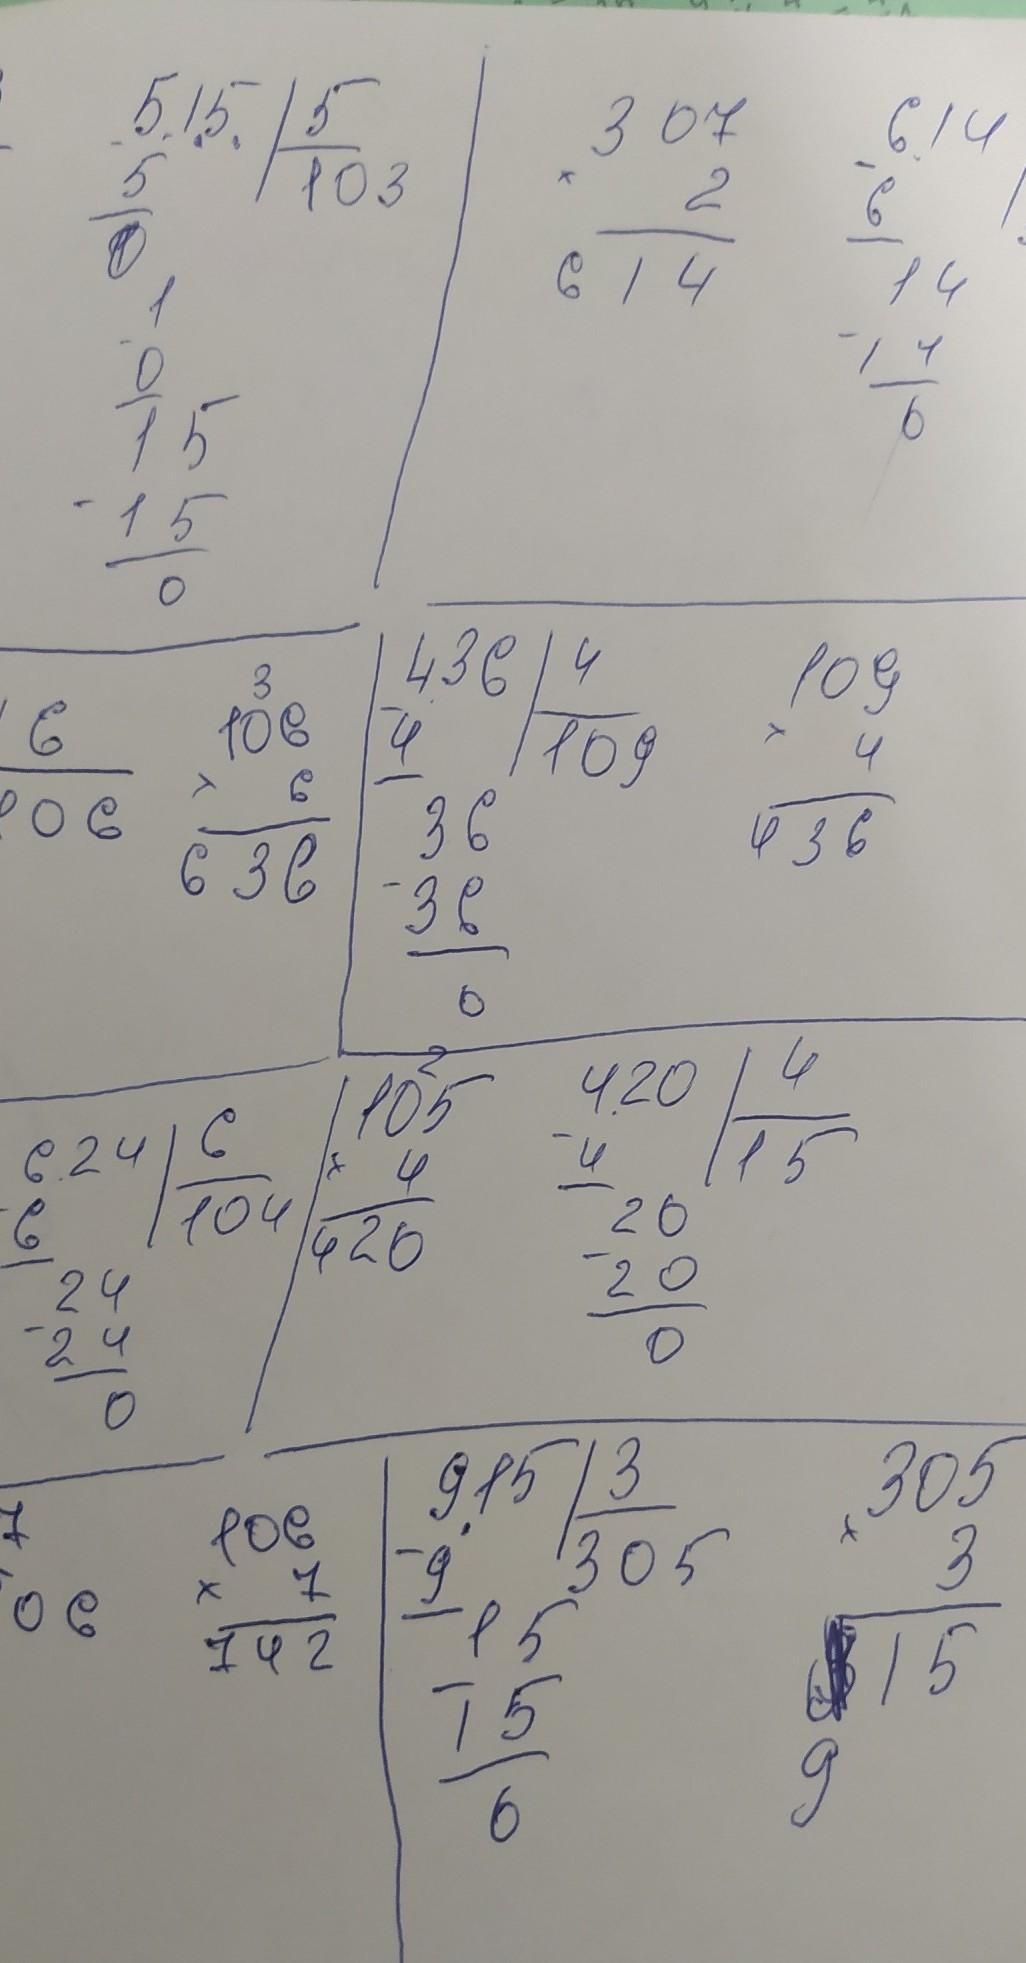 515 | 5
5 103
0
1
- 0
15
- 15
0
307
× 2
614
- 614
6
14
- 14
0
6
106
3
106
× 6
636
436 | 4
- 4 109
36
- 36
0
109
× 4
436
624 | 6
- 6 104
24
- 24
0
2
105
× 4
420
420 | 4
- 4 15
20
- 20
0
7
06
106
× 7
742
915 | 3
- 9 305
15
- 15
0
305
× 3
15
9